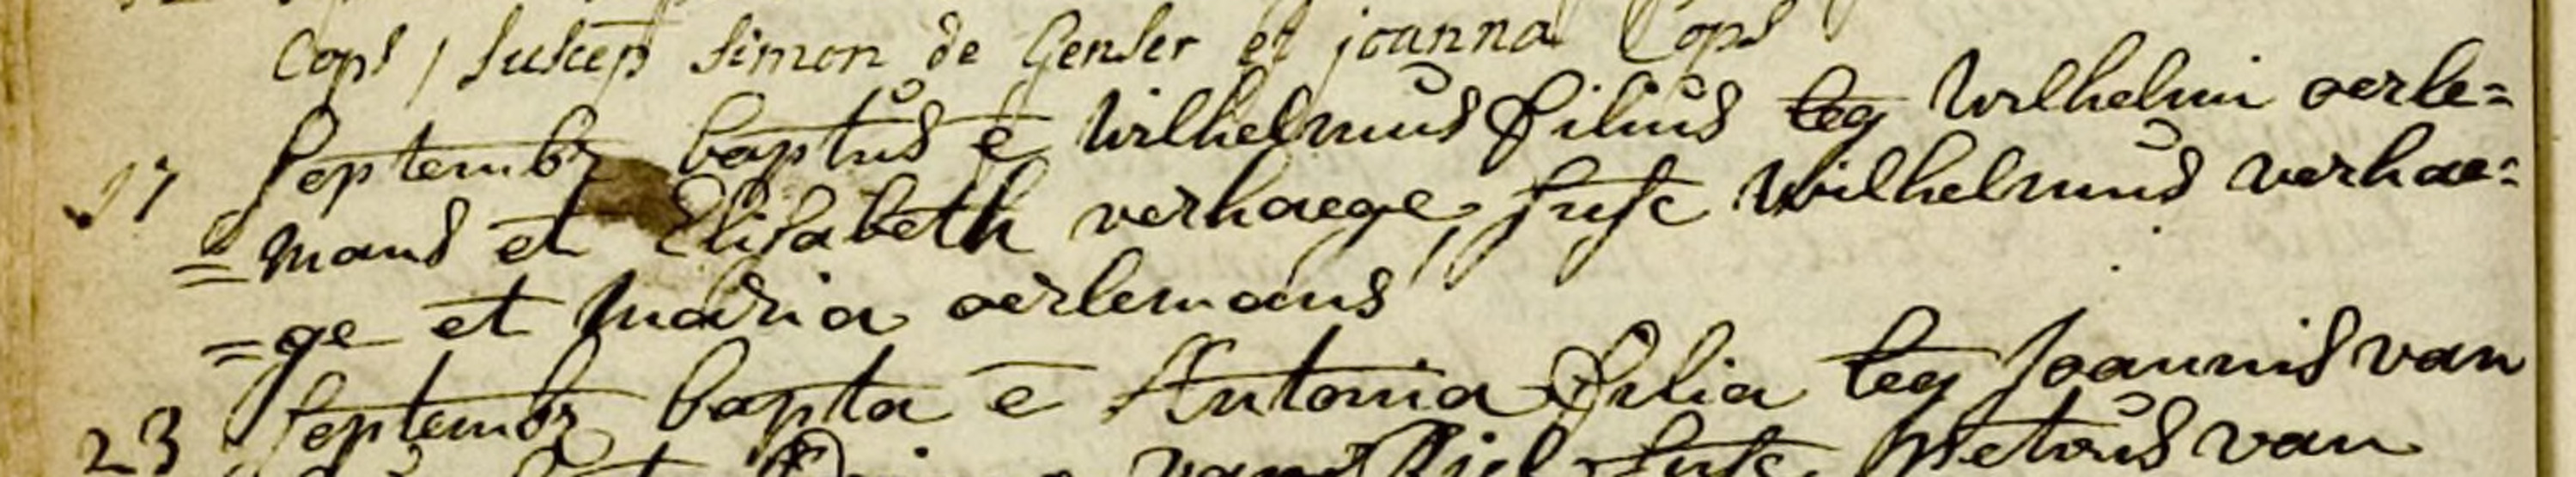 Cops / suscep simon de Genser et joanna Cops
17 Septembr baptus ē wilhelmus filius leg wilhelmi oerle=
=mans et Elisabeth verhaege, susc wilhelmus verhae=
=ge et maria oerlemans
23 Septembr bapta ē Antonia filia leg Joannis van
van Riel susc. Petrus van